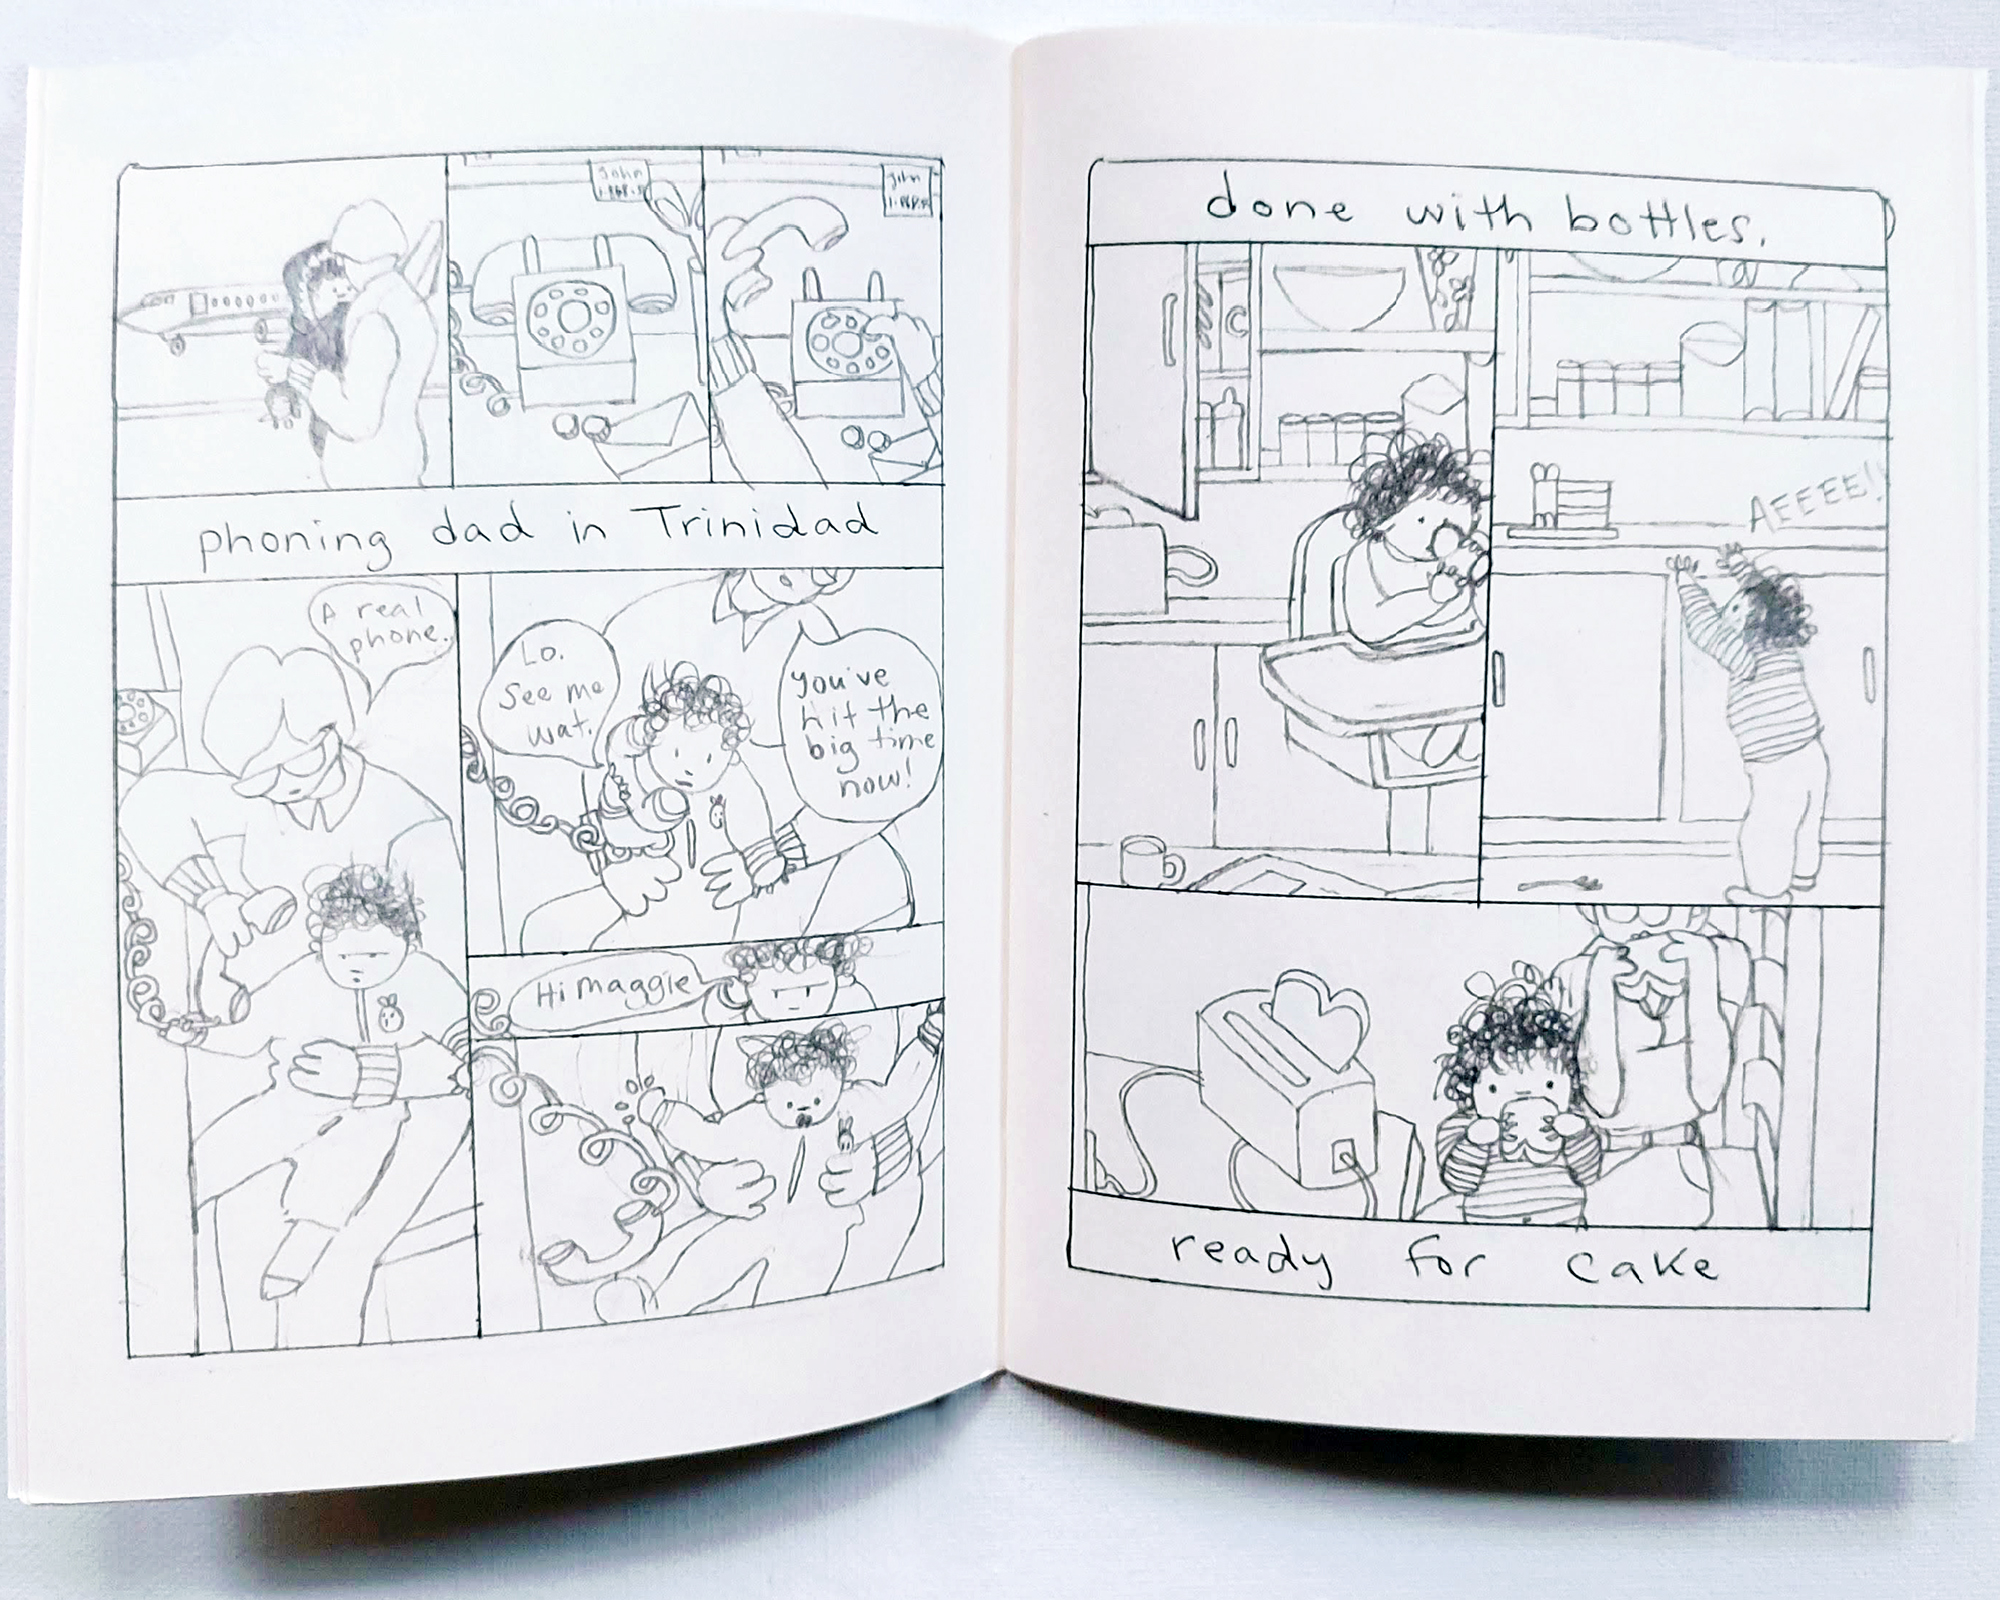 John
John
phoning dad in Trinidad
A real
phone.
Lo.
See me
wat.
you've
hit the
big time
now!
Hi maggie
done with bottles.
C
AEEEE!!
ready for cake